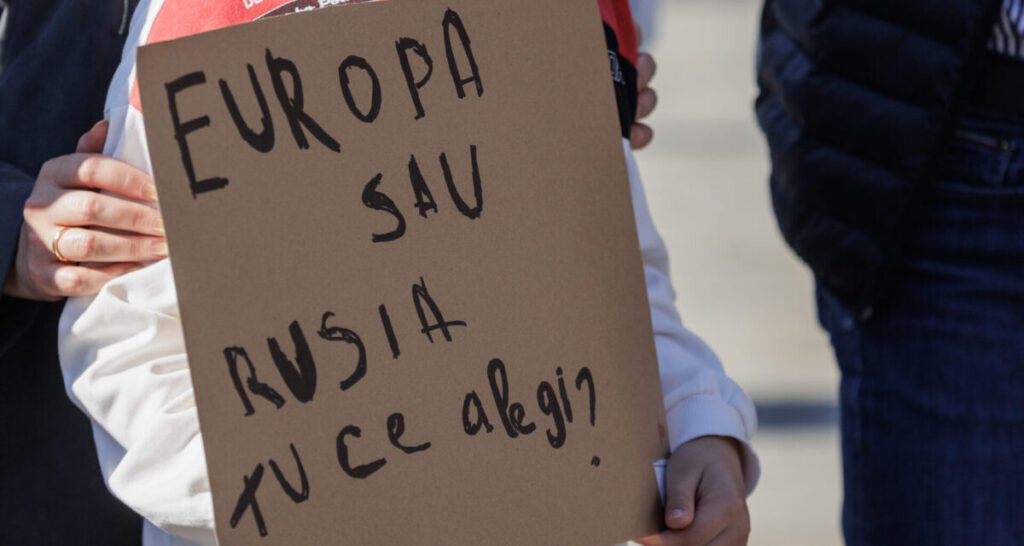 EUROPA
SAU
RUSIA
TU CE alegi?